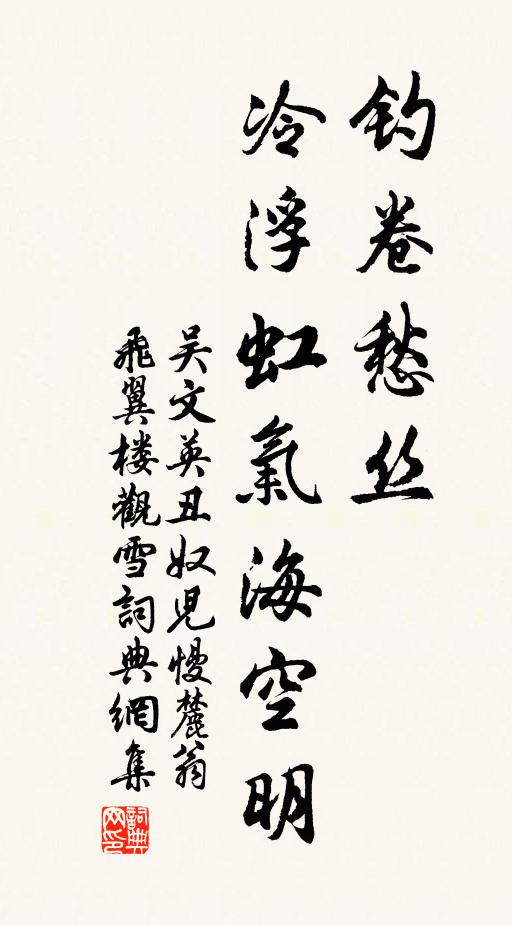 钓卷愁丝
冷浮虹氣海空明
吴文英丑奴儿慢麓翁
飛翼楼觀雪詞典網集
詞典网印